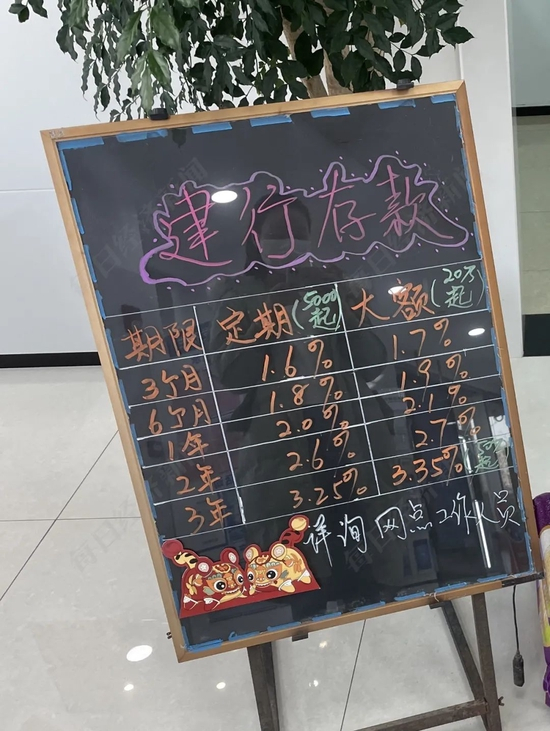 建行存款
期限 定期(5000起) 大额(20万起)
3个月 1.6% 1.7%
6个月 1.8% 1.9%
1年 2.0% 2.1%
2年 2.6% 2.7%
3年 3.25% 3.35%
详询网点工作人员
每日经济新闻